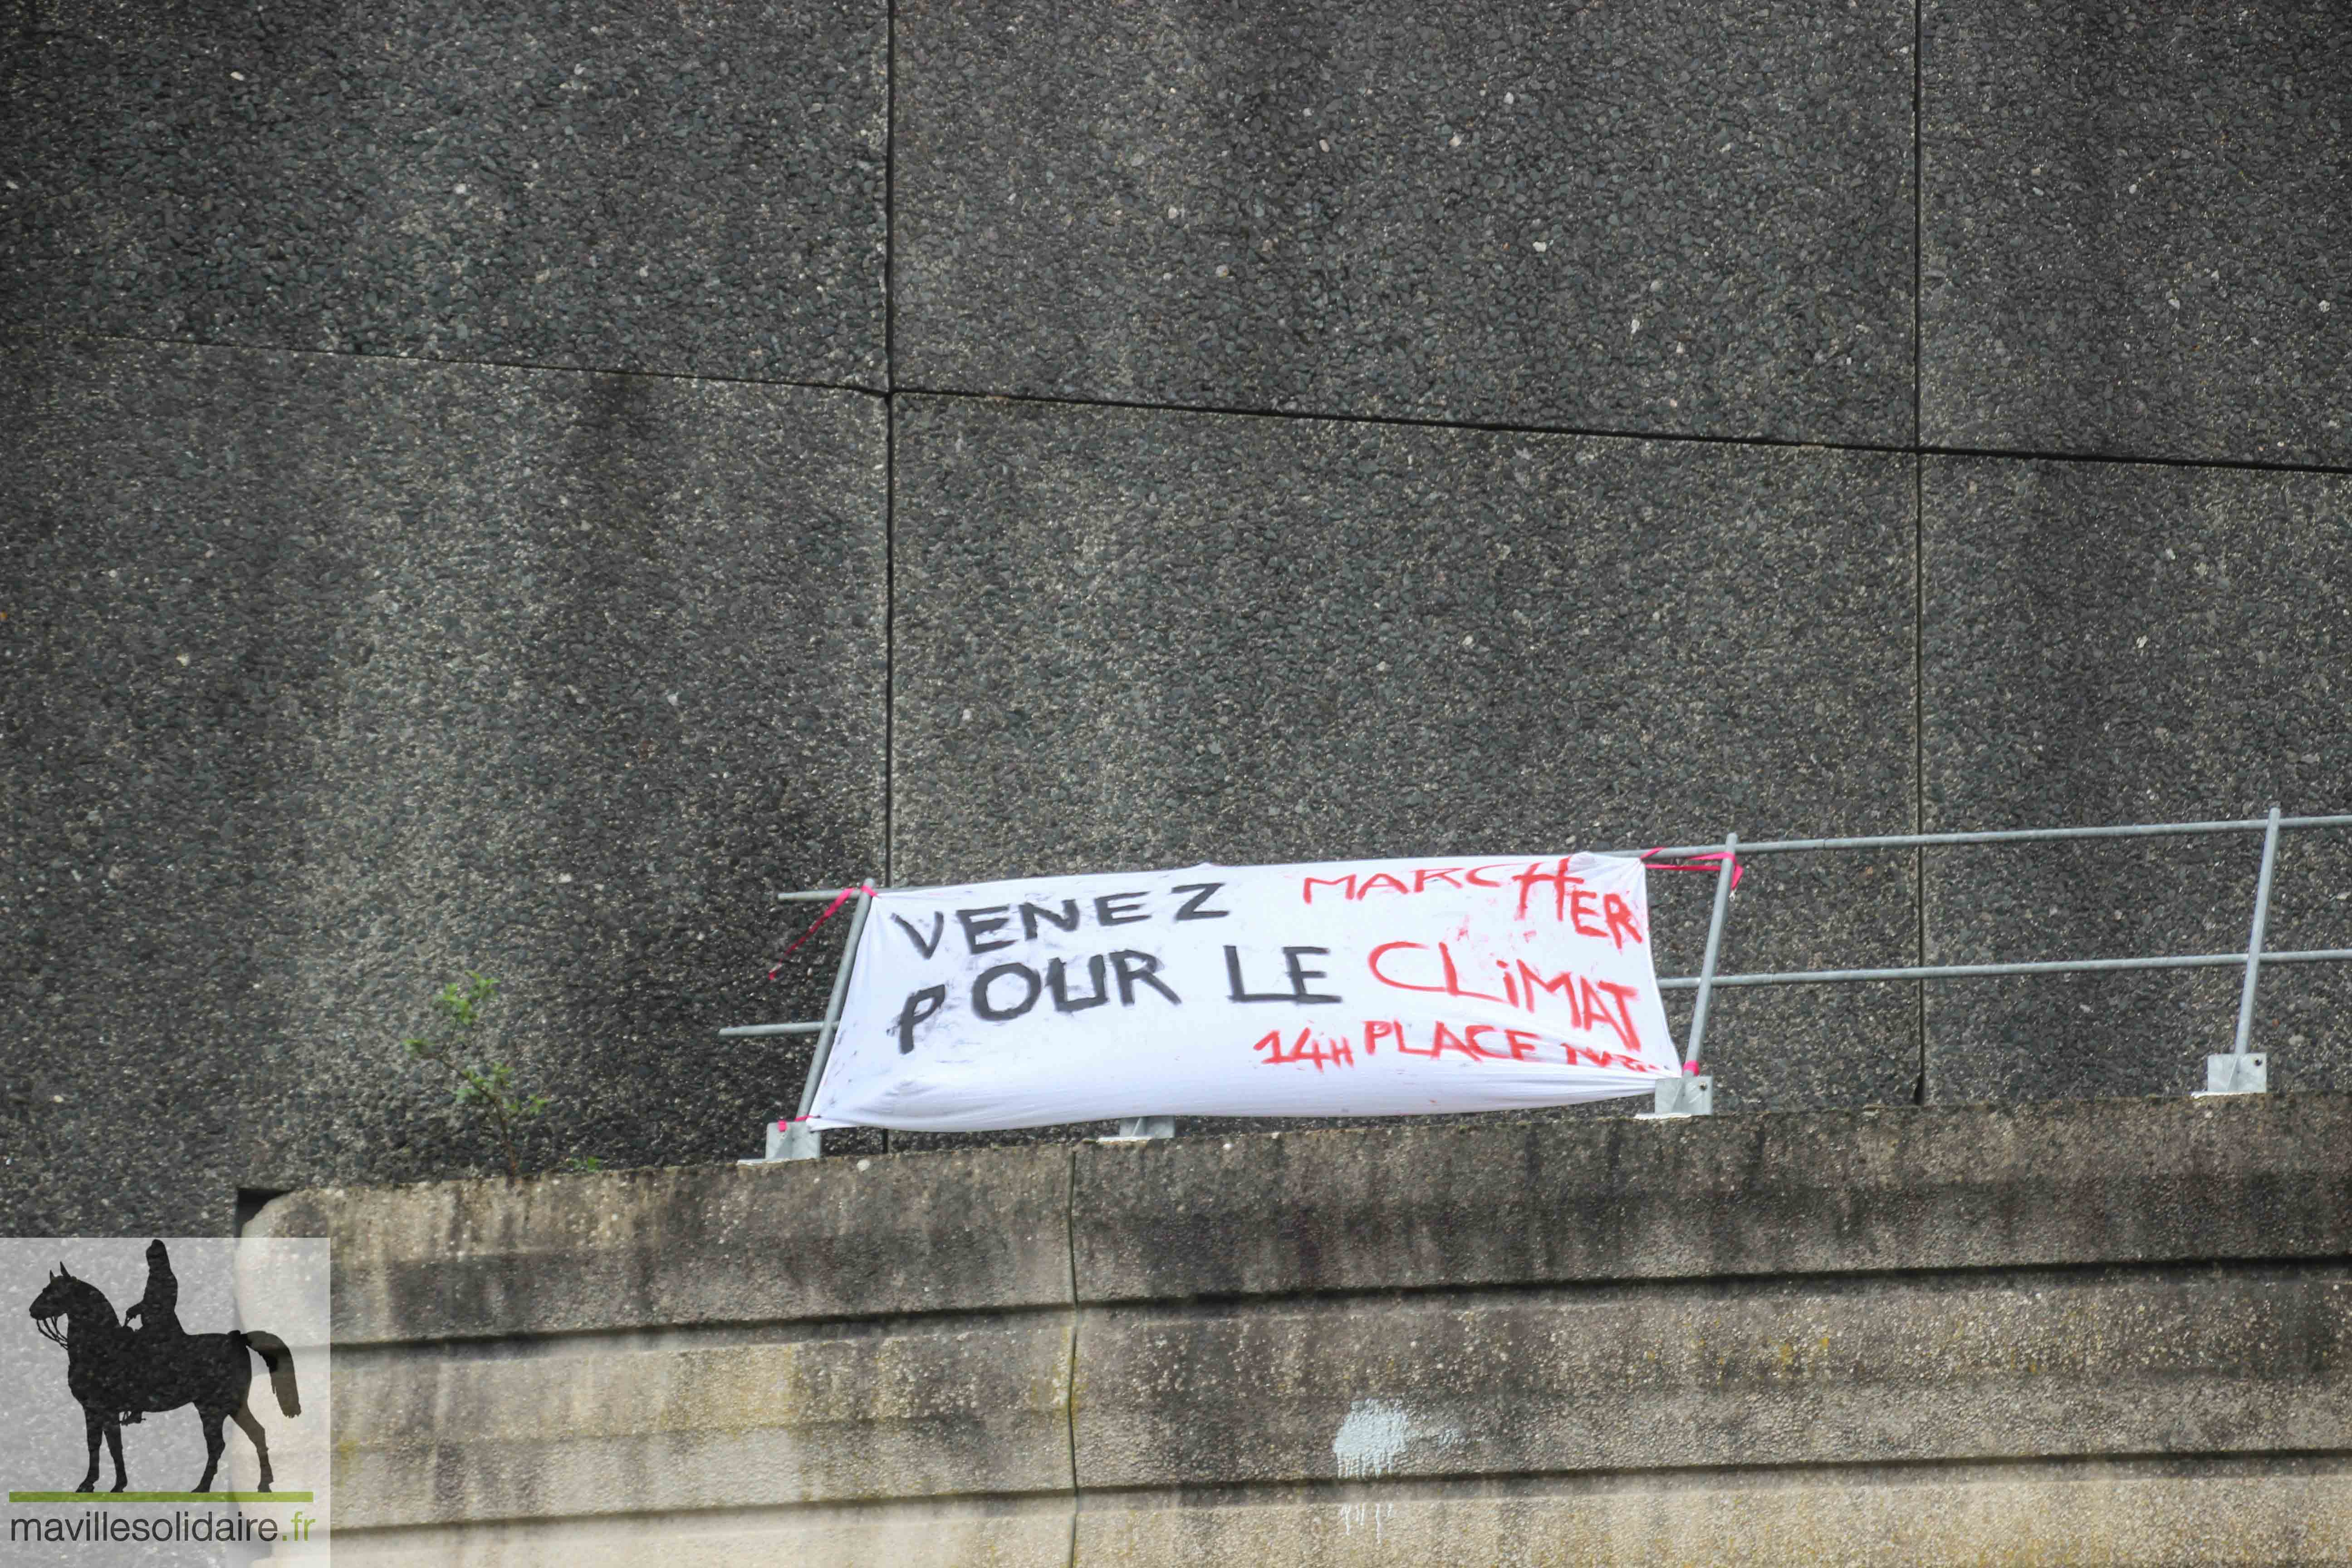 VENEZ MARCHER
POUR LE CLiMAT
14H PLACE
mavillesolidaire.fr